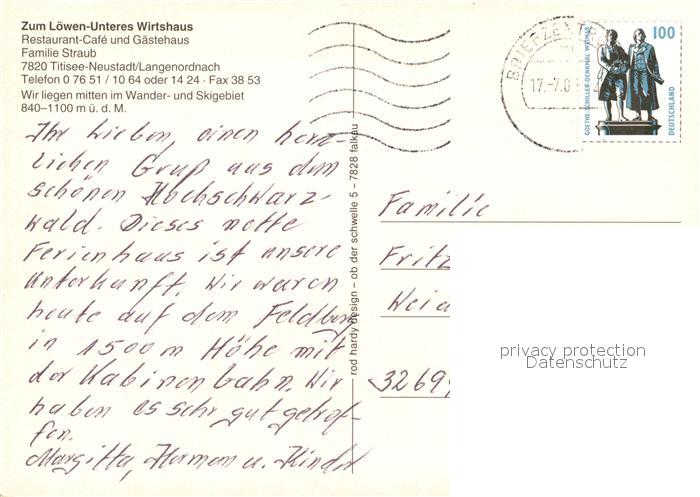 Zum Löwen-Unteres Wirtshaus
Restaurant-Café und Gästehaus
Familie Straub
7820 Titisee-Neustadt/Langenordnach
Telefon 0 76 51 / 10 64 oder 14 24 · Fax 38 53
Wir liegen mitten im Wander- und Skigebiet
840–1100 m ü. d. M.
Ihr Lieben, einen herz-
lichen Gruß aus dem
schönen Hochschwarz-
wald. Dieses nette
Ferienhaus ist unsere
Unterkunft. Wir waren
heute auf dem Feldberg
in 1500 m Höhe mit
der Kabinenbahn. Wir
haben es sehr gut getrof-
fen.
Margitta, Hermann u. Kinder
rod hardy design – ob der schwelle 5 – 7828 falkau
BRIEFZENTR
17.-7.0
100
GOETHE-SCHILLER-DENKMAL WEIMAR
DEUTSCHLAND
Familie
Fritz
32699
privacy protection
Datenschutz